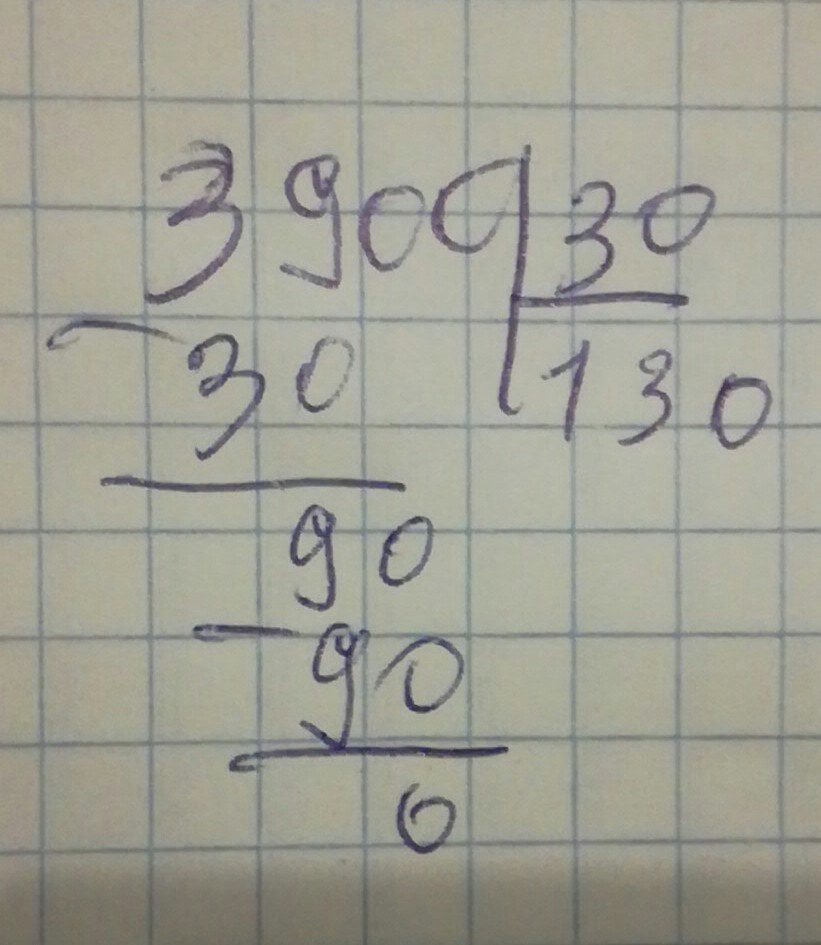 3900 30
- 30 130
90
- 90
0